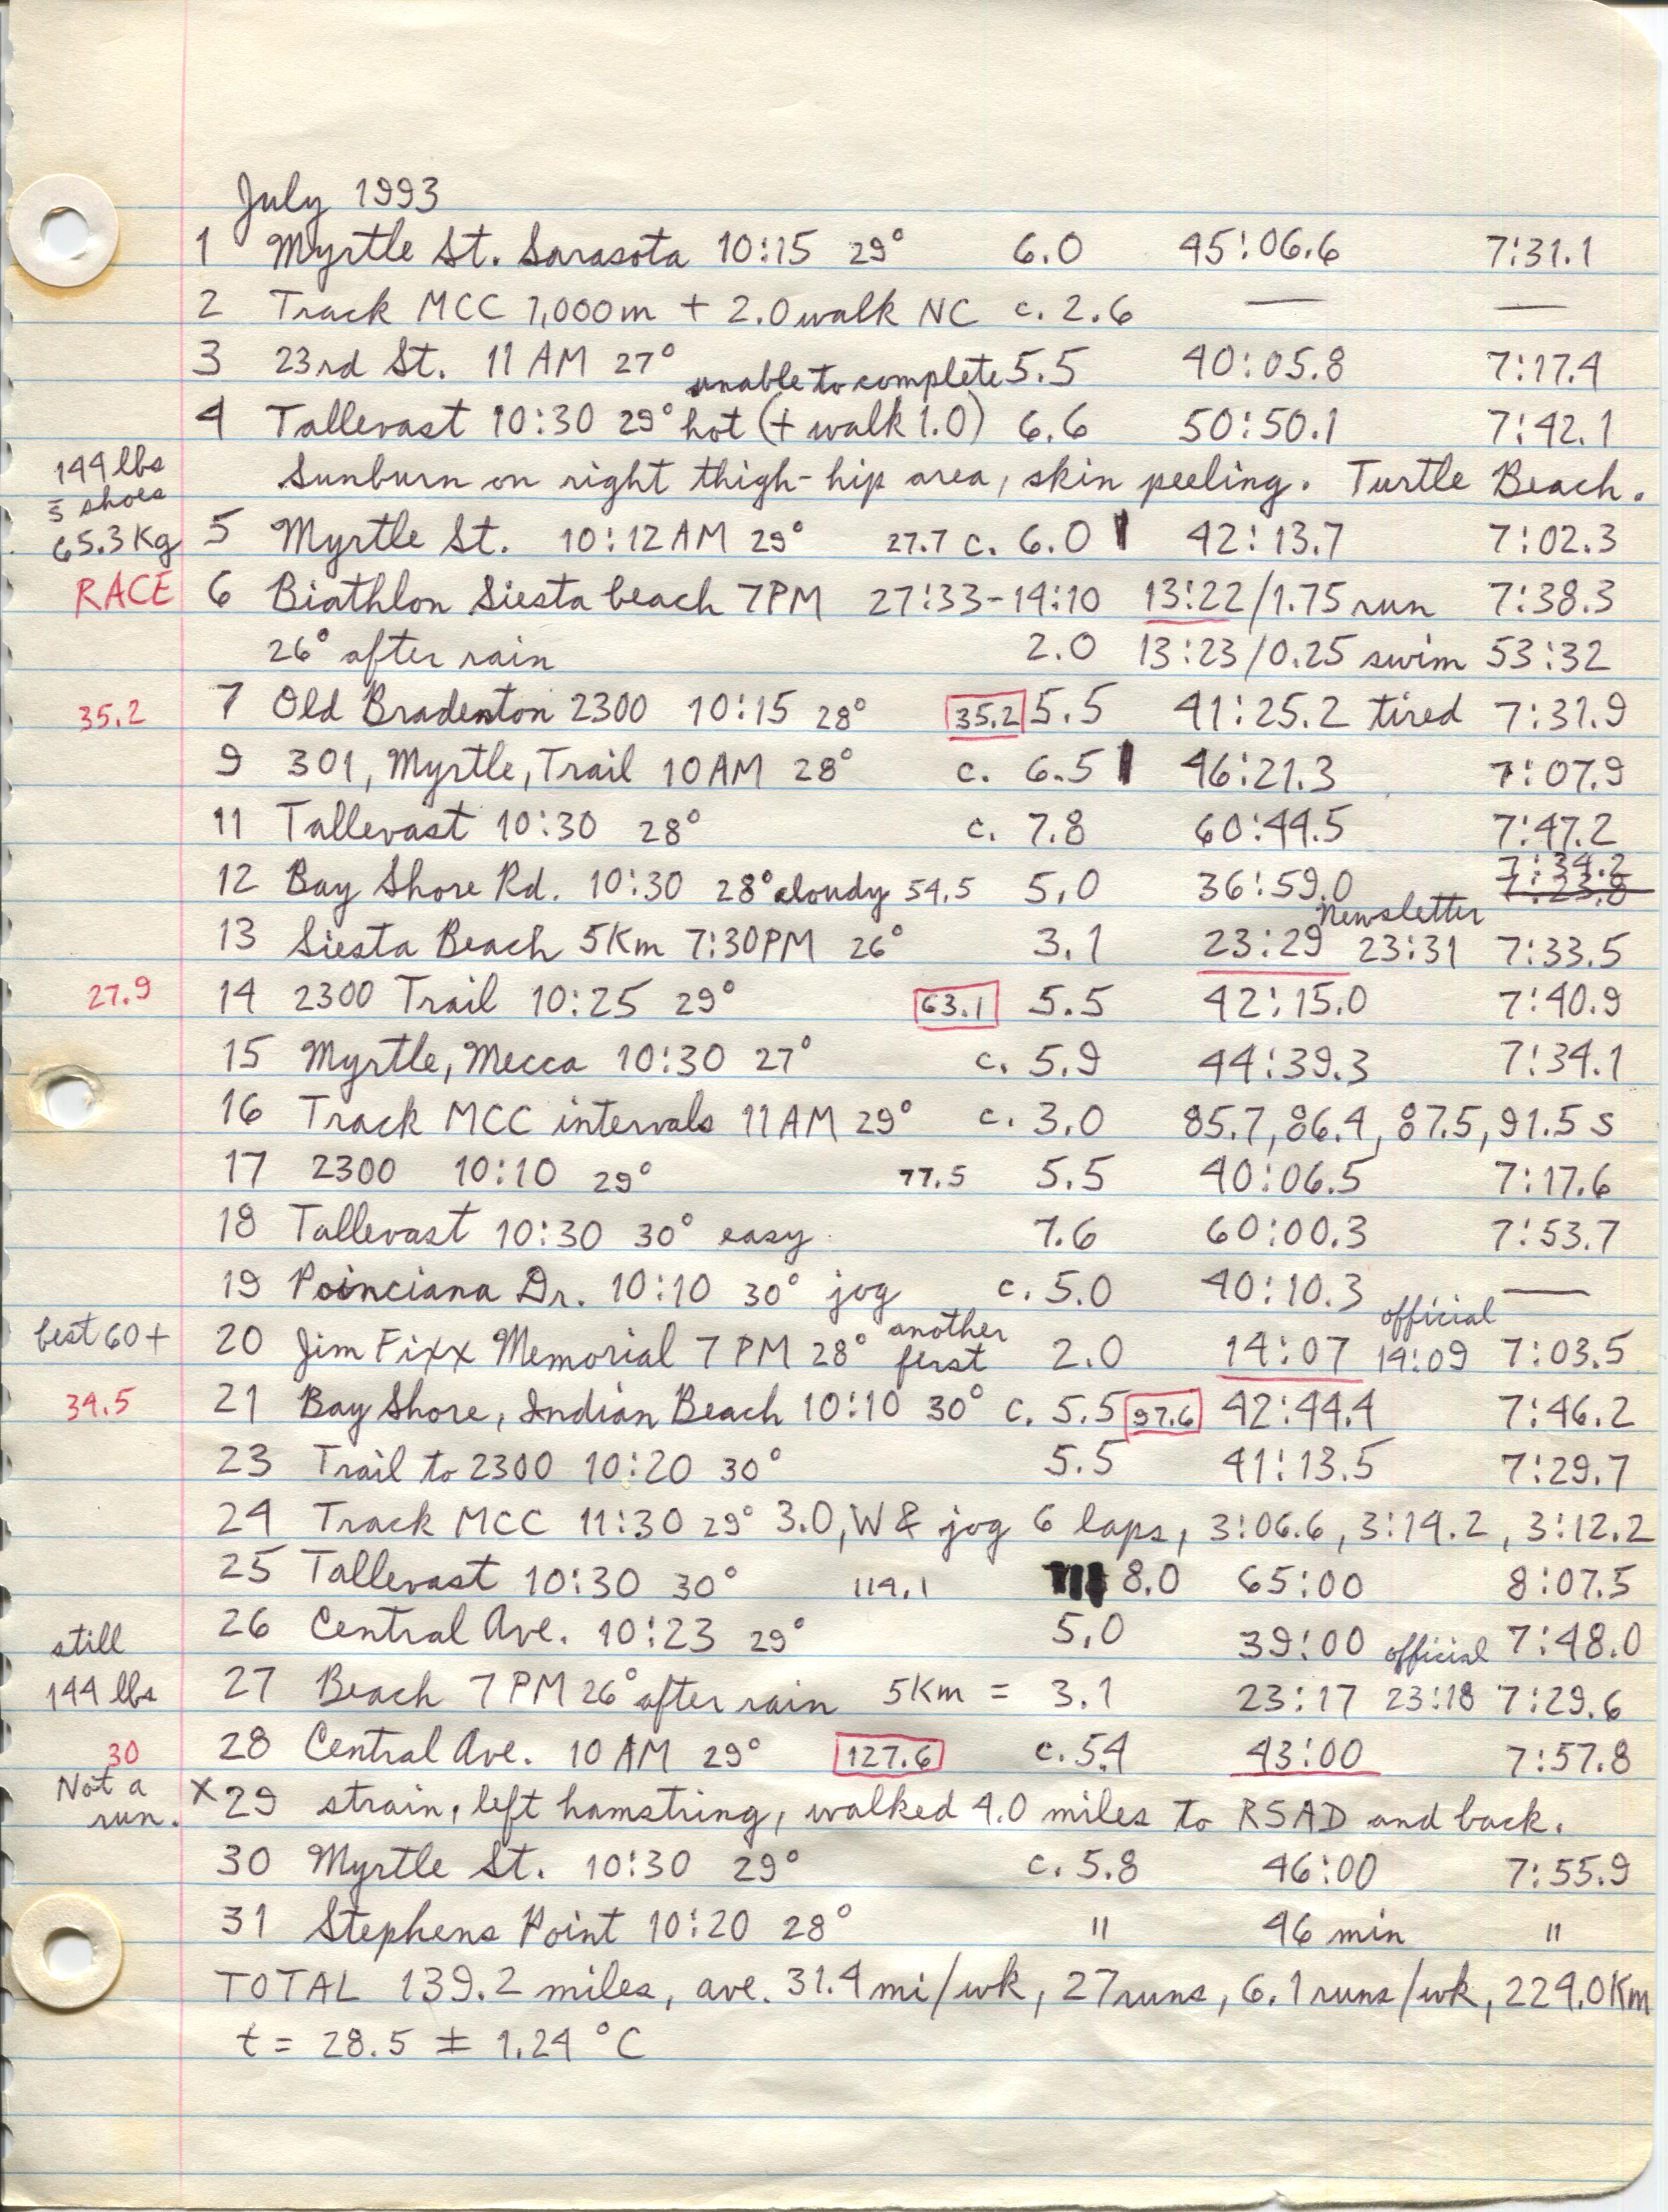 July 1993
1 Myrtle St. Sarasota 10:15 29° 6.0 45:06.6 7:31.1
2 Track MCC 1,000m + 2.0 walk NC c. 2.6 — —
3 23rd St. 11 AM 27° 5.5 40:05.8 7:17.4
unable to complete
4 Tallevast 10:30 29° hot (+ walk 1.0) 6.6 50:50.1 7:42.1
144 lbs
Sunburn on right thigh-hip area, skin peeling. Turtle Beach.
shoes
65.3 Kg 5 Myrtle St. 10:12 AM 29° 27.7 c. 6.0 42:13.7 7:02.3
RACE 6 Biathlon Siesta beach 7PM 27:33-14:10 13:22/1.75 run 7:38.3
26° after rain 2.0 13:23/0.25 swim 53:32
35.2 7 Old Bradenton 2300 10:15 28° 35.2 5.5 41:25.2 tired 7:31.9
9 301, Myrtle, Trail 10 AM 28° c. 6.5 46:21.3 7:07.9
11 Tallevast 10:30 28° c. 7.8 60:44.5 7:47.2
7:34.2
12 Bay Shore Rd. 10:30 28° cloudy 54.5 5.0 36:59.0 7:23.8
newsletter
13 Siesta Beach 5Km 7:30PM 26° 3.1 23:29 23:31 7:33.5
27.9 14 2300 Trail 10:25 29° 63.1 5.5 42:15.0 7:40.9
15 Myrtle, Mecca 10:30 27° c. 5.9 44:39.3 7:34.1
16 Track MCC intervals 11 AM 29° c. 3.0 85.7, 86.4, 87.5, 91.5 s
17 2300 10:10 29° 77.5 5.5 40:06.5 7:17.6
18 Tallevast 10:30 30° easy 7.6 60:00.3 7:53.7
19 Poinciana Dr. 10:10 30° jog c. 5.0 40:10.3 —
another official
best 60+ 20 Jim Fixx Memorial 7 PM 28° first 2.0 14:07 14:09 7:03.5
34.5 21 Bay Shore, Indian Beach 10:10 30° c. 5.5 97.6 42:44.4 7:46.2
23 Trail to 2300 10:20 30° 5.5 41:13.5 7:29.7
24 Track MCC 11:30 29° 3.0, W & jog 6 laps, 3:06.6, 3:14.2, 3:12.2
25 Tallevast 10:30 30° 114.1 8.0 65:00 8:07.5
still 26 Central Ave. 10:23 29° 5.0 39:00 7:48.0
official
144 lbs 27 Beach 7 PM 26° after rain 5Km = 3.1 23:17 23:18 7:29.6
30 28 Central Ave. 10 AM 29° 127.6 c. 5.4 43:00 7:57.8
Not a run. x 29 strain, left hamstring, walked 4.0 miles to RSAD and back.
30 Myrtle St. 10:30 29° c. 5.8 46:00 7:55.9
31 Stephens Point 10:20 28° " 46 min "
TOTAL 139.2 miles, ave. 31.4 mi/wk, 27 runs, 6.1 runs/wk, 224.0 Km
t = 28.5 ± 1.24 °C